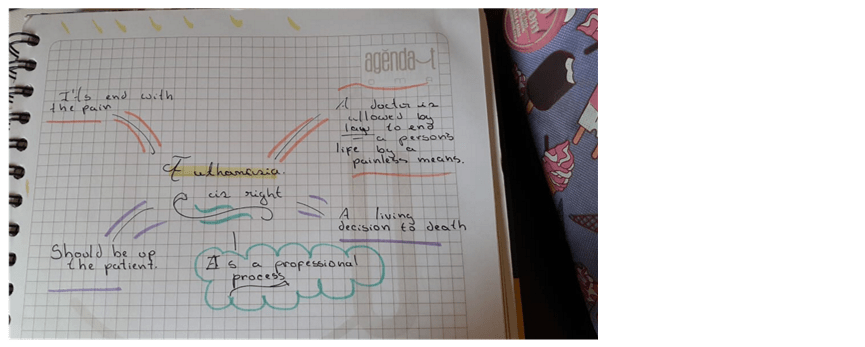 agenda
I't's end with
the pain
A doctor is
allowed by
law to end
a person's
life by a
painless means.
Euthanasia.
is right
A living
decision to death
Should be up
the patient.
It's a professional
process